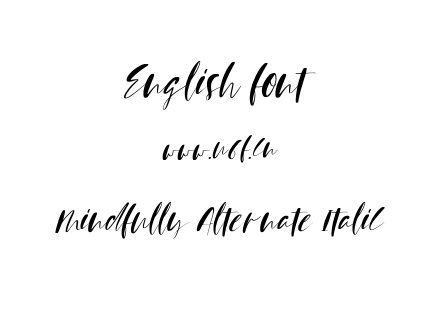 English font
www.u6f.cn
Mindfully Alternate Italic